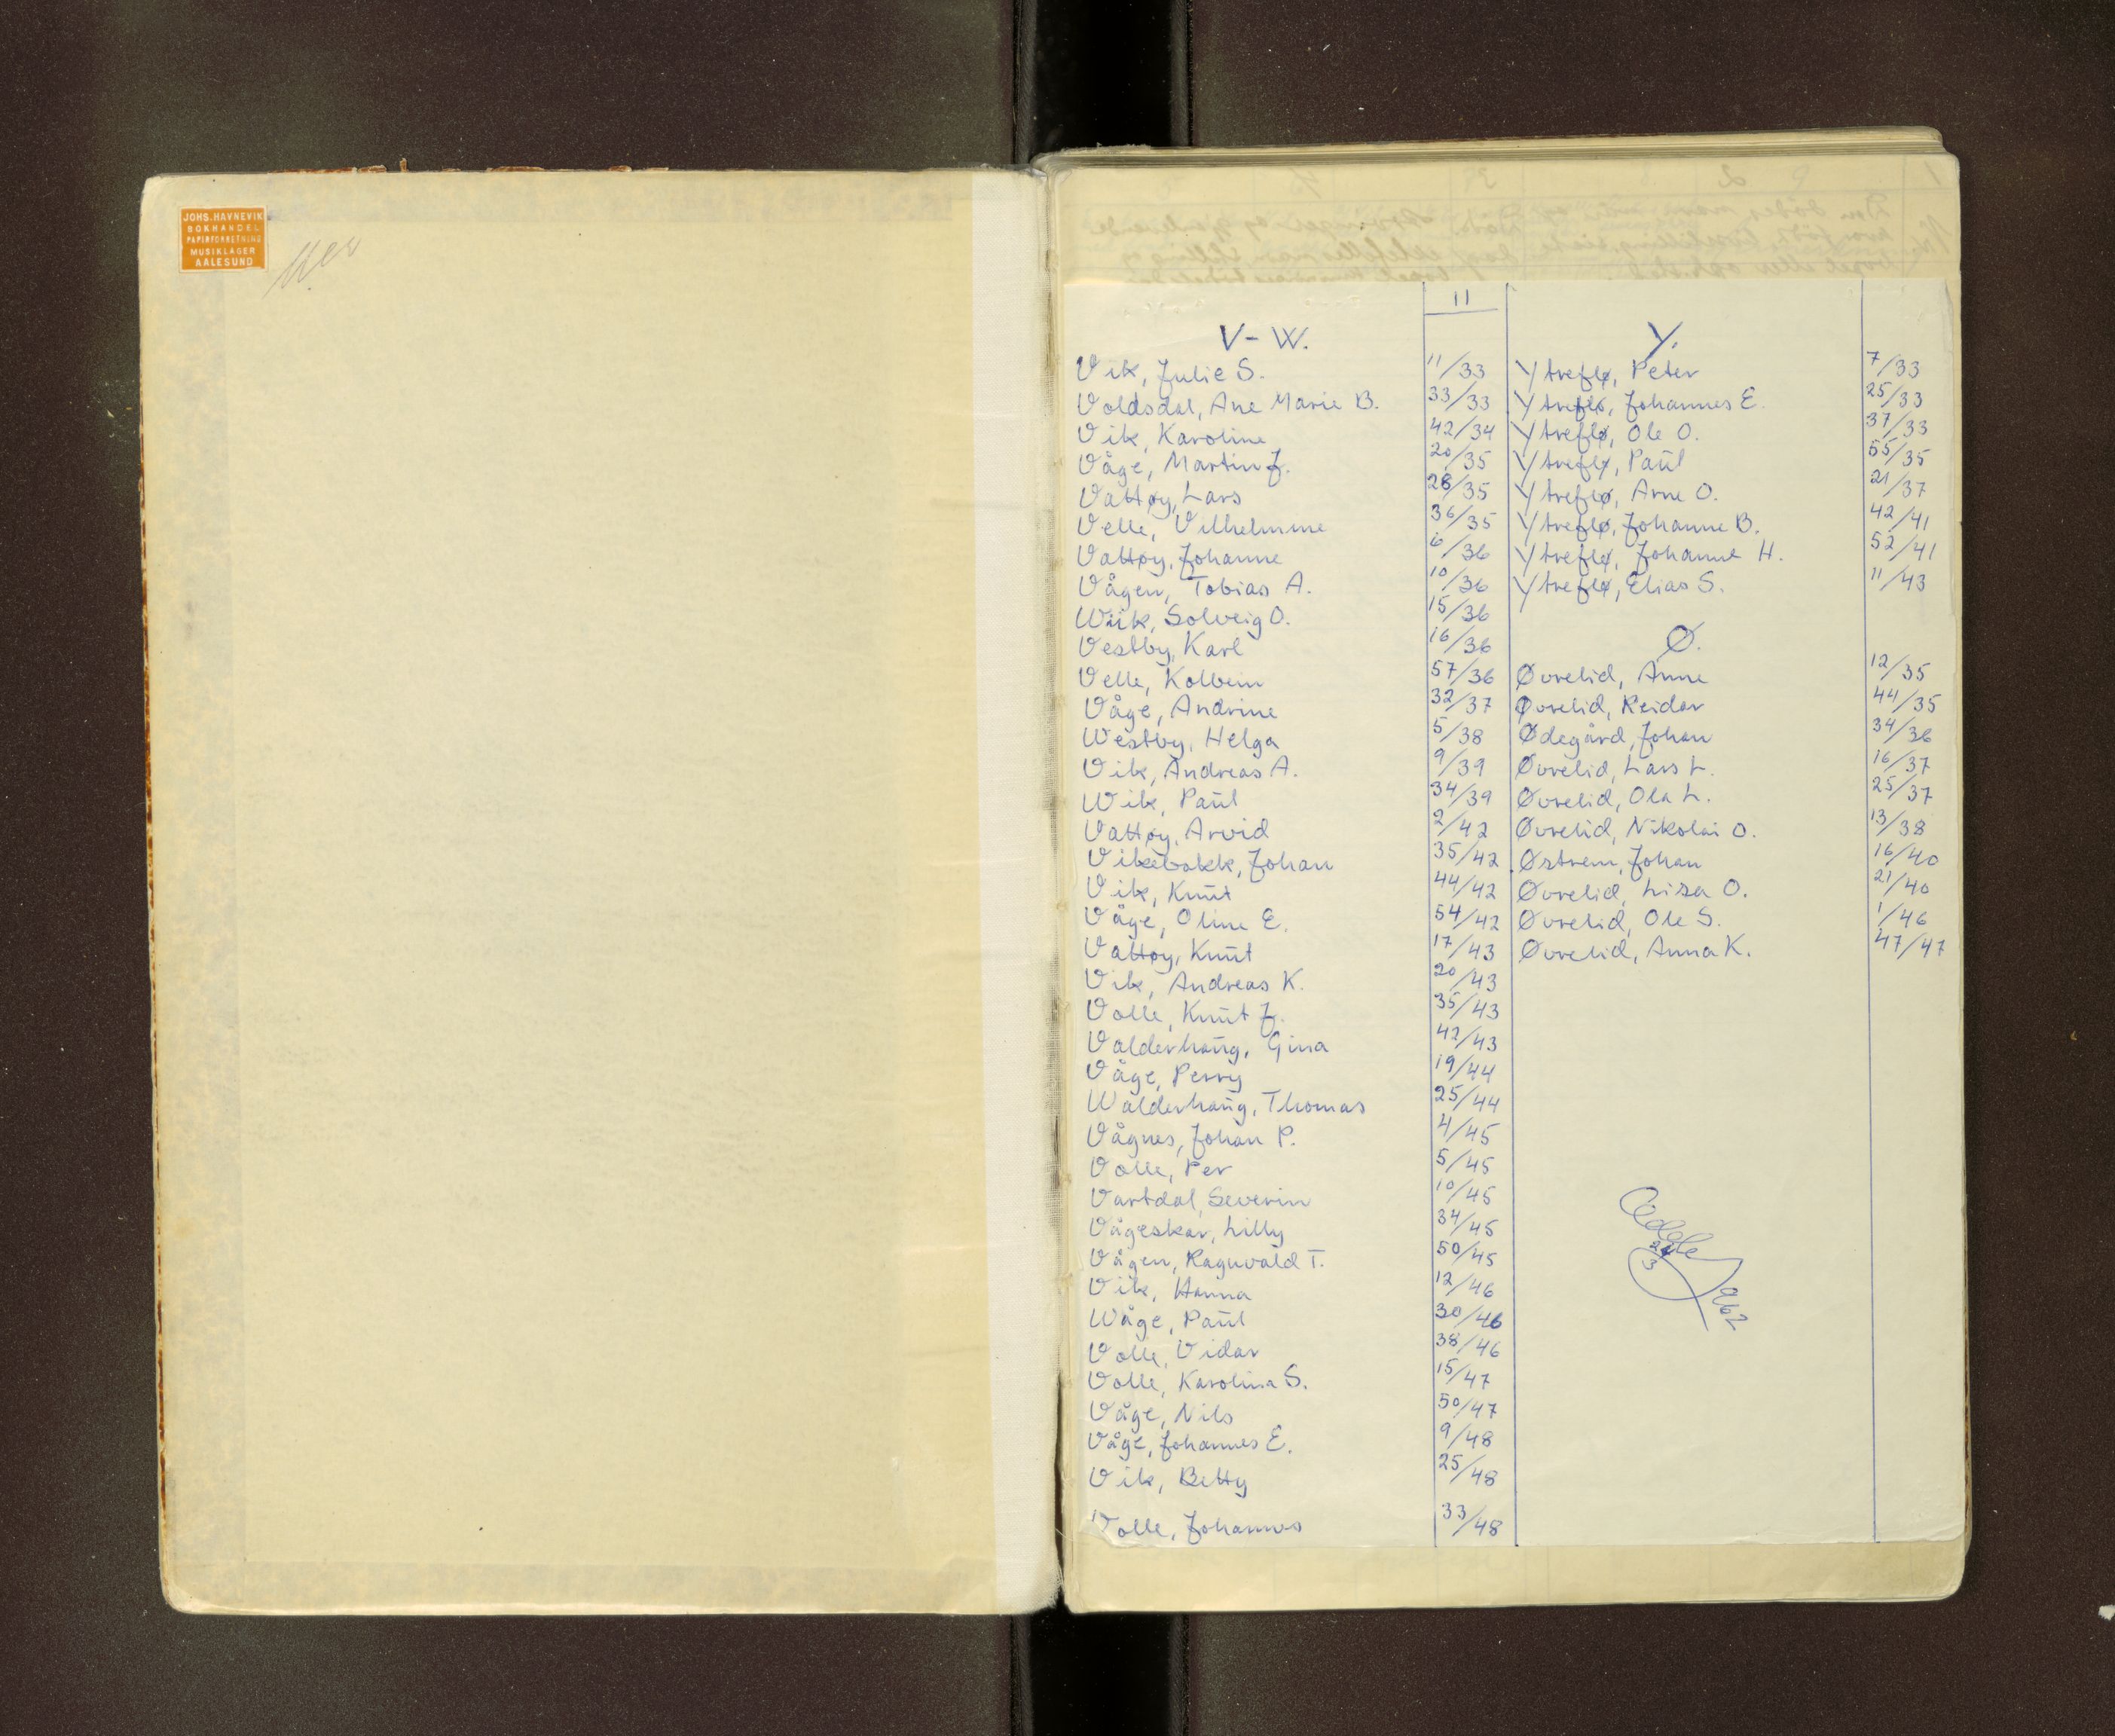 JOHS. HAVNEVIK
BOKHANDEL
PAPIRFORRETNING
MUSIKLAGER
AALESUND
11
V-W.
Vik, Julie S. 11/33
Voldsdal, Ane Marie B. 33/33
Vik, Karoline 42/34
Våge, Martin J. 20/35
Vattøy, Lars 28/35
Velle, Vilhelmine 36/35
Vattøy, Johanne 6/36
Vågen, Tobias A. 10/36
Wiik, Solveig O. 15/36
Vestby, Karl 16/36
Velle, Kolbein 57/36
Våge, Andrine 32/37
Westby, Helga 5/38
Vik, Andreas A. 9/39
Wik, Paul 34/39
Vattøy, Arvid 2/42
Vikebakk, Johan 35/42
Vik, Knut 44/42
Våge, Oline E. 54/42
Vattøy, Knut 17/43
Vik, Andreas K. 20/43
Volle, Knut J. 35/43
Valderhaug, Gina 42/43
Våge, Perry 19/44
Walderhaug, Thomas 25/44
Vågnes, Johan P. 4/45
Volle, Per 5/45
Vartdal, Severin 10/45
Vågeskar, Lilly 34/45
Vågen, Ragnvald T. 50/45
Vik, Hanna 12/46
Wåge, Paul 30/46
Volle, Vidar 38/46
Volle, Karolina S. 15/47
Våge, Nils 50/47
Våge, Johannes E. 9/48
Vik, Betty 25/48
Volle, Johannes 33/48
Y.
Ytreflø, Peter 7/33
Ytreflø, Johannes E. 25/33
Ytreflø, Ole O. 37/33
Ytreflø, Paul 55/35
Ytreflø, Arne O. 21/37
Ytreflø, Johanne B. 42/41
Ytreflø, Johanne H. 52/41
Ytreflø, Elias S. 11/43
Ø.
Øvrelid, Anne 12/35
Øvrelid, Reidar 44/35
Ødegård, Johan 34/36
Øvrelid, Lars L. 16/37
Øvrelid, Ola L. 25/37
Øvrelid, Nikolai O. 13/38
Østrem, Johan 16/40
Øvrelid, Lisa O. 21/40
Øvrelid, Ole S. 1/46
Øvrelid, Anna K. 47/47